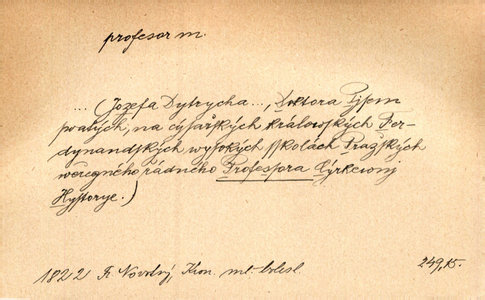 profesor m.
... (Jozefa Dytrycha..., Doktora Pjsem
swatých, na cýsařských králowských Fer-
dynandských wysokých sskolách Pražských
weregného řádného Professora Cýrkewnj
Hystorye.)
1822 Fr Novotný, Kron. ml. bolesl. 249, 15.